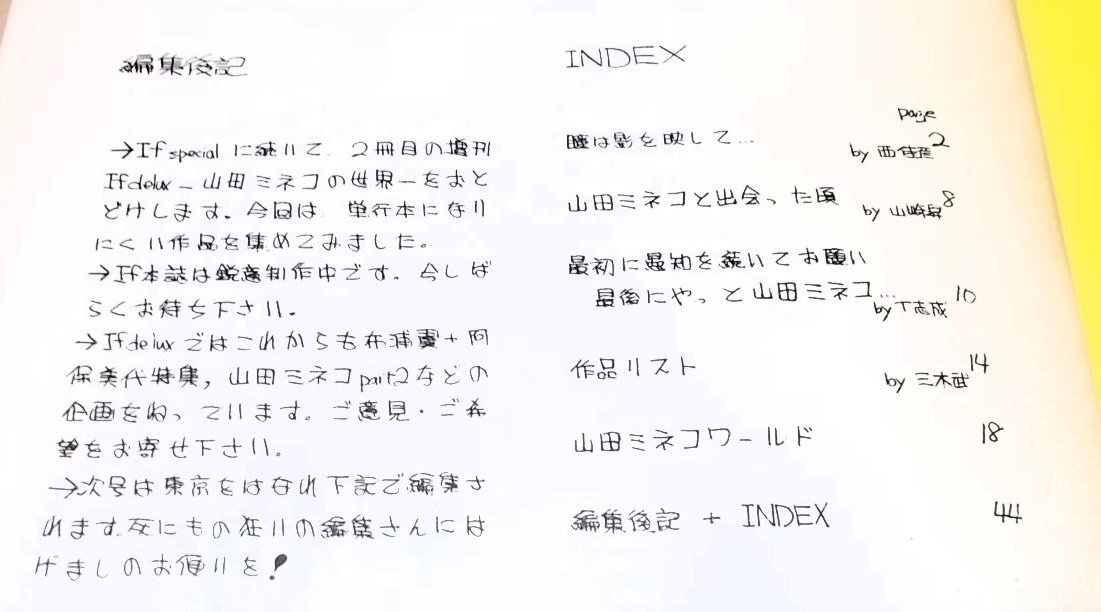 編集後記
→If special に続いて、２冊目の増刊
Ifdelux－山田ミネコの世界－をおと
どけします。今回は、単行本になり
にくい作品を集めてみました。
→If本誌は鋭意制作中です。今しば
らくお待ち下さい。
→Ifdeluxではこれからも布浦翼＋阿
保美代特集，山田ミネコpart2などの
企画をねっています。ご意見・ご希
望をお寄せ下さい。
→次号は東京をはなれ下記で編集さ
れます。死にもの狂いの編集さんには
げましのお便りを！
INDEX
page
瞳は影を映して… by 西 2
山田ミネコと出会った頃 by 山崎 8
最初に最知を続いてお願い
最後にやっと山田ミネコ… by 丁志成 10
作品リスト by 三木武 14
山田ミネコワールド 18
編集後記 + INDEX 44